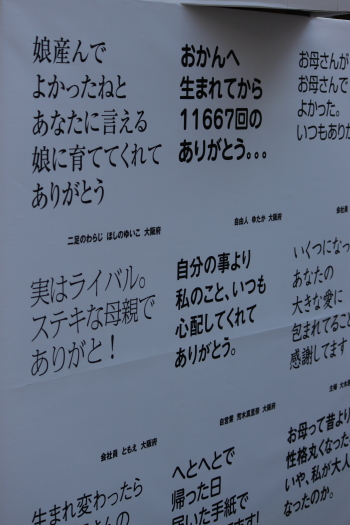 娘産んで
よかったねと
あなたに言える
娘に育ててくれて
ありがとう
二足のわらじ ほしのゆいこ 大阪府
おかんへ
生まれてから
11667回の
ありがとう。。。
自由人 ゆたか 大阪府
お母さんが
お母さんで
よかった。
いつもありが
会社員
実はライバル。
ステキな母親で
ありがと！
会社員 ともえ 大阪府
自分の事より
私のこと、いつも
心配してくれて
ありがとう。
自営業 荒木真里那 大阪府
いくつになっ
あなたの
大きな愛に
包まれてるこ
感謝してます
主婦
生まれ変わったら
へとへとで
帰った日
届いた手紙で
お母って昔より
性格丸くなった
いや、私が大人
なったのか。